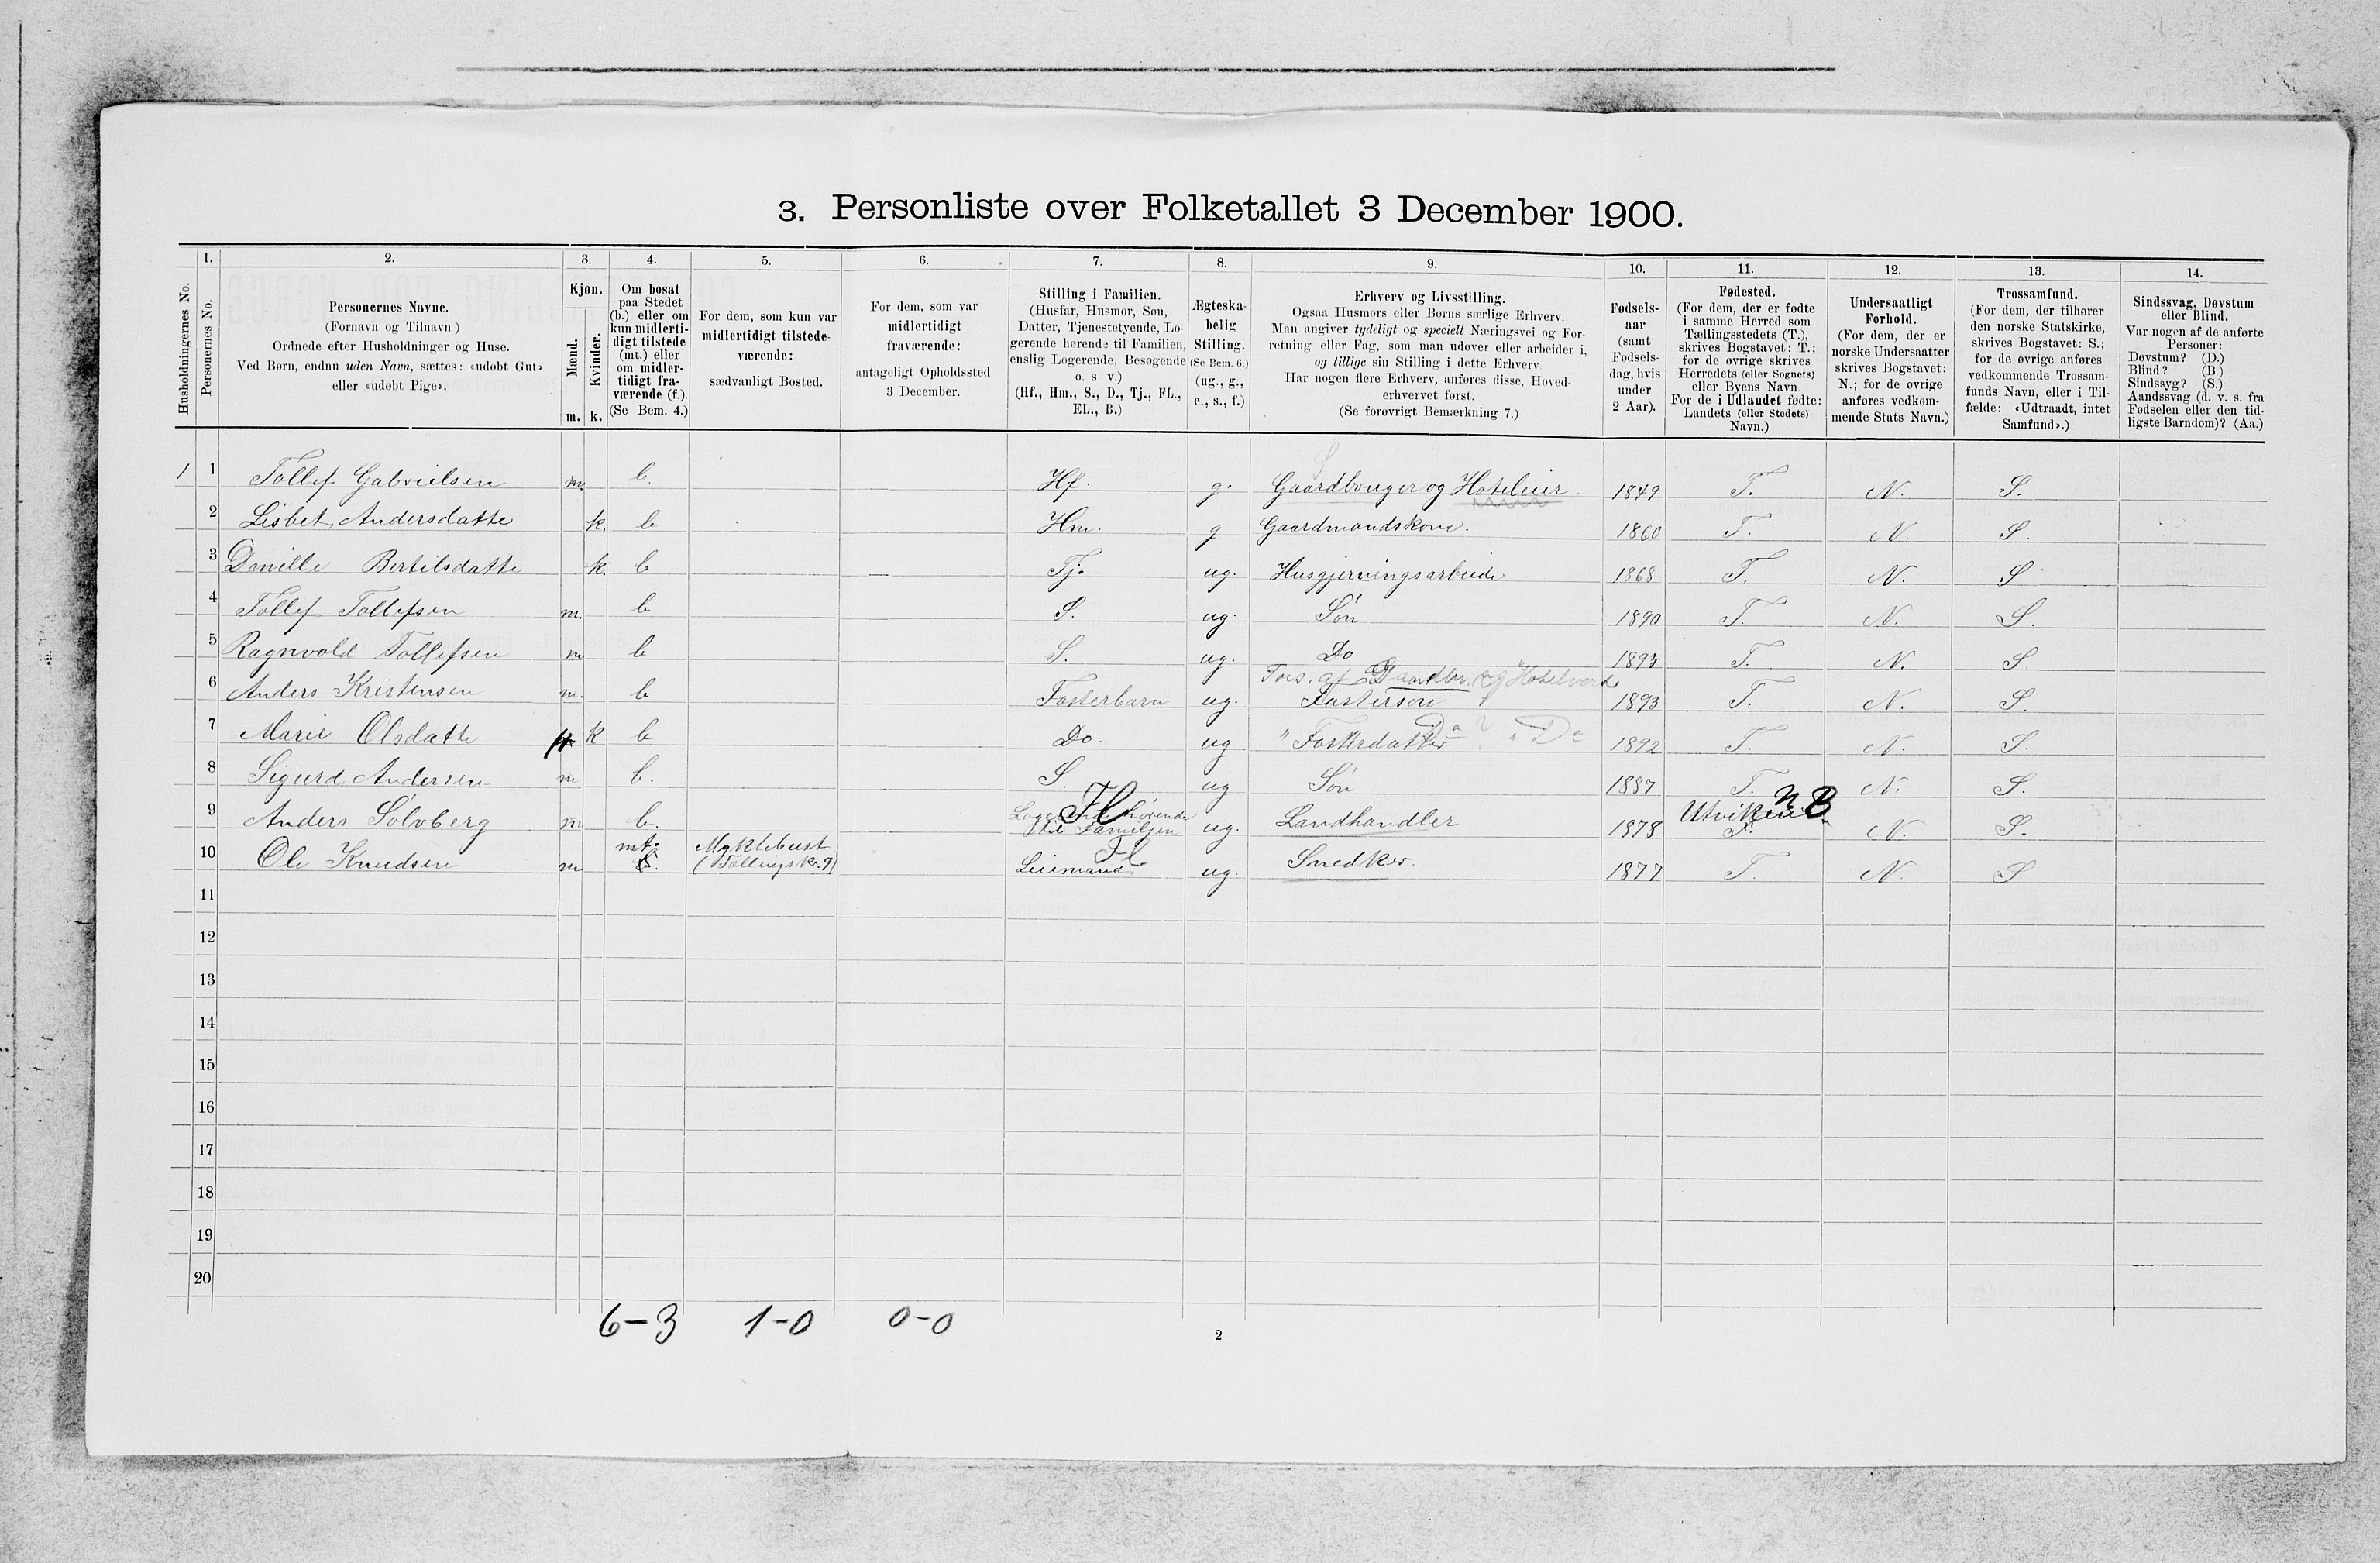 3. Personliste over Folketallet 3 December 1900.
1. 2. 3. 4. 5. 6. 7. 8. 9. 10. 11. 12. 13. 14.
Husholdningernes No.
Personernes No.
Personernes Navne.
(Fornavn og Tilnavn)
Ordnede efter Husholdninger og Huse.
Ved Børn, endnu uden Navn, sættes: «udøbt Gut»
eller «udøbt Pige».
Kjøn.
Mænd.
Kvinder.
m. k.
Om bosat
paa Stedet
(b.) eller om
kun midlerti-
digt tilstede
(mt.) eller
om midler-
tidigt fra-
værende (f.).
(Se Bem. 4.)
For dem, som kun var
midlertidigt tilstede-
værende:
sædvanligt Bosted.
For dem, som var
midlertidigt
fraværende:
antageligt Opholdssted
3 December.
Stilling i Familien.
(Husfar, Husmor, Søn,
Datter, Tjenestetyende, Lo-
gerende hørende til Familien,
enslig Logerende, Besøgende
o. s v.)
(Hf., Hm., S., D., Tj., FL.,
EL., B.)
Ægteska-
belig
Stilling.
(Se Bem. 6.)
(ug., g.,
e., s., f.)
Erhverv og Livsstilling.
Ogsaa Husmors eller Børns særlige Erhverv.
Man angiver tydeligt og specielt Næringsvei og For-
retning eller Fag, som man udøver eller arbeider i,
og tillige sin Stilling i dette Erhverv.
Har nogen flere Erhverv, anføres disse, Hoved-
erhvervet først.
(Se forøvrigt Bemærkning 7.)
Fødsels-
aar
(samt
Fødsels-
dag, hvis
under
2 Aar).
Fødested.
(For dem, der er fødte
i samme Herred som
Tællingsstedets (T.),
skrives Bogstavet: T.;
for de øvrige skrives
Herredets (eller Sognets)
eller Byens Navn.
For de i Udlandet fødte:
Landets (eller Stedets)
Navn.)
Undersaatligt
Forhold.
(For dem, der er
norske Undersaatter
skrives Bogstavet:
N.; for de øvrige
anføres vedkom-
mende Stats Navn.)
Trossamfund.
(For dem, der tilhører
den norske Statskirke,
skrives Bogstavet: S.;
for de øvrige anføres
vedkommende Trossam-
funds Navn, eller i Til-
fælde: «Udtraadt, intet
Samfund».)
Sindssvag, Døvstum
eller Blind.
Var nogen af de anførte
Personer:
Døvstum? (D.)
Blind? (B.)
Sindssyg? (S.)
Aandssvag (d. v. s. fra
Fødselen eller den tid-
ligste Barndom)? (Aa.)
1 1 Tollef Gabrielsen m. b. Hf. g. Gaardbruger og Hoteleier 1849 T. N. S.
2 Lisbet Andersdatte k. b Hm. g Gaardmandskone. 1860 T. N. S.
3 Danille Bertilsdatte k. b Tj. ug. Husgjerningsarbeide 1868 T. N. S
4 Tollef Tollefsen m. b S. ug. Søn 1890 T. N. S.
5 Ragnvald Tollefsen m b S. ug. Do 1893 T. N. S
Fors. af Gaardbr. og Hotelvert
6 Anders Kristensen m. b Fosterbarn ug. Fostersøn 1893 T. N. S.
7 Marie Olsdatte k b Do. ug " Fosterdatter Do 1892 T. N. S.
8 Sigurd Andersen m b. S. ug Søn 1887 T. N. S.
9 Anders Sølvberg m b. Logerende hørende til Familjen FL ug. Landhandler 1878 Utviken NB T. N. S.
10 Ole Knudsen m mt. b. Myklebust (Tællingskr. 9) Leiemand FL ug. Snedker. 1877 T. N. S
11
12
13
14
15
16
17
18
19
20
6-3 1-0 0-0
2